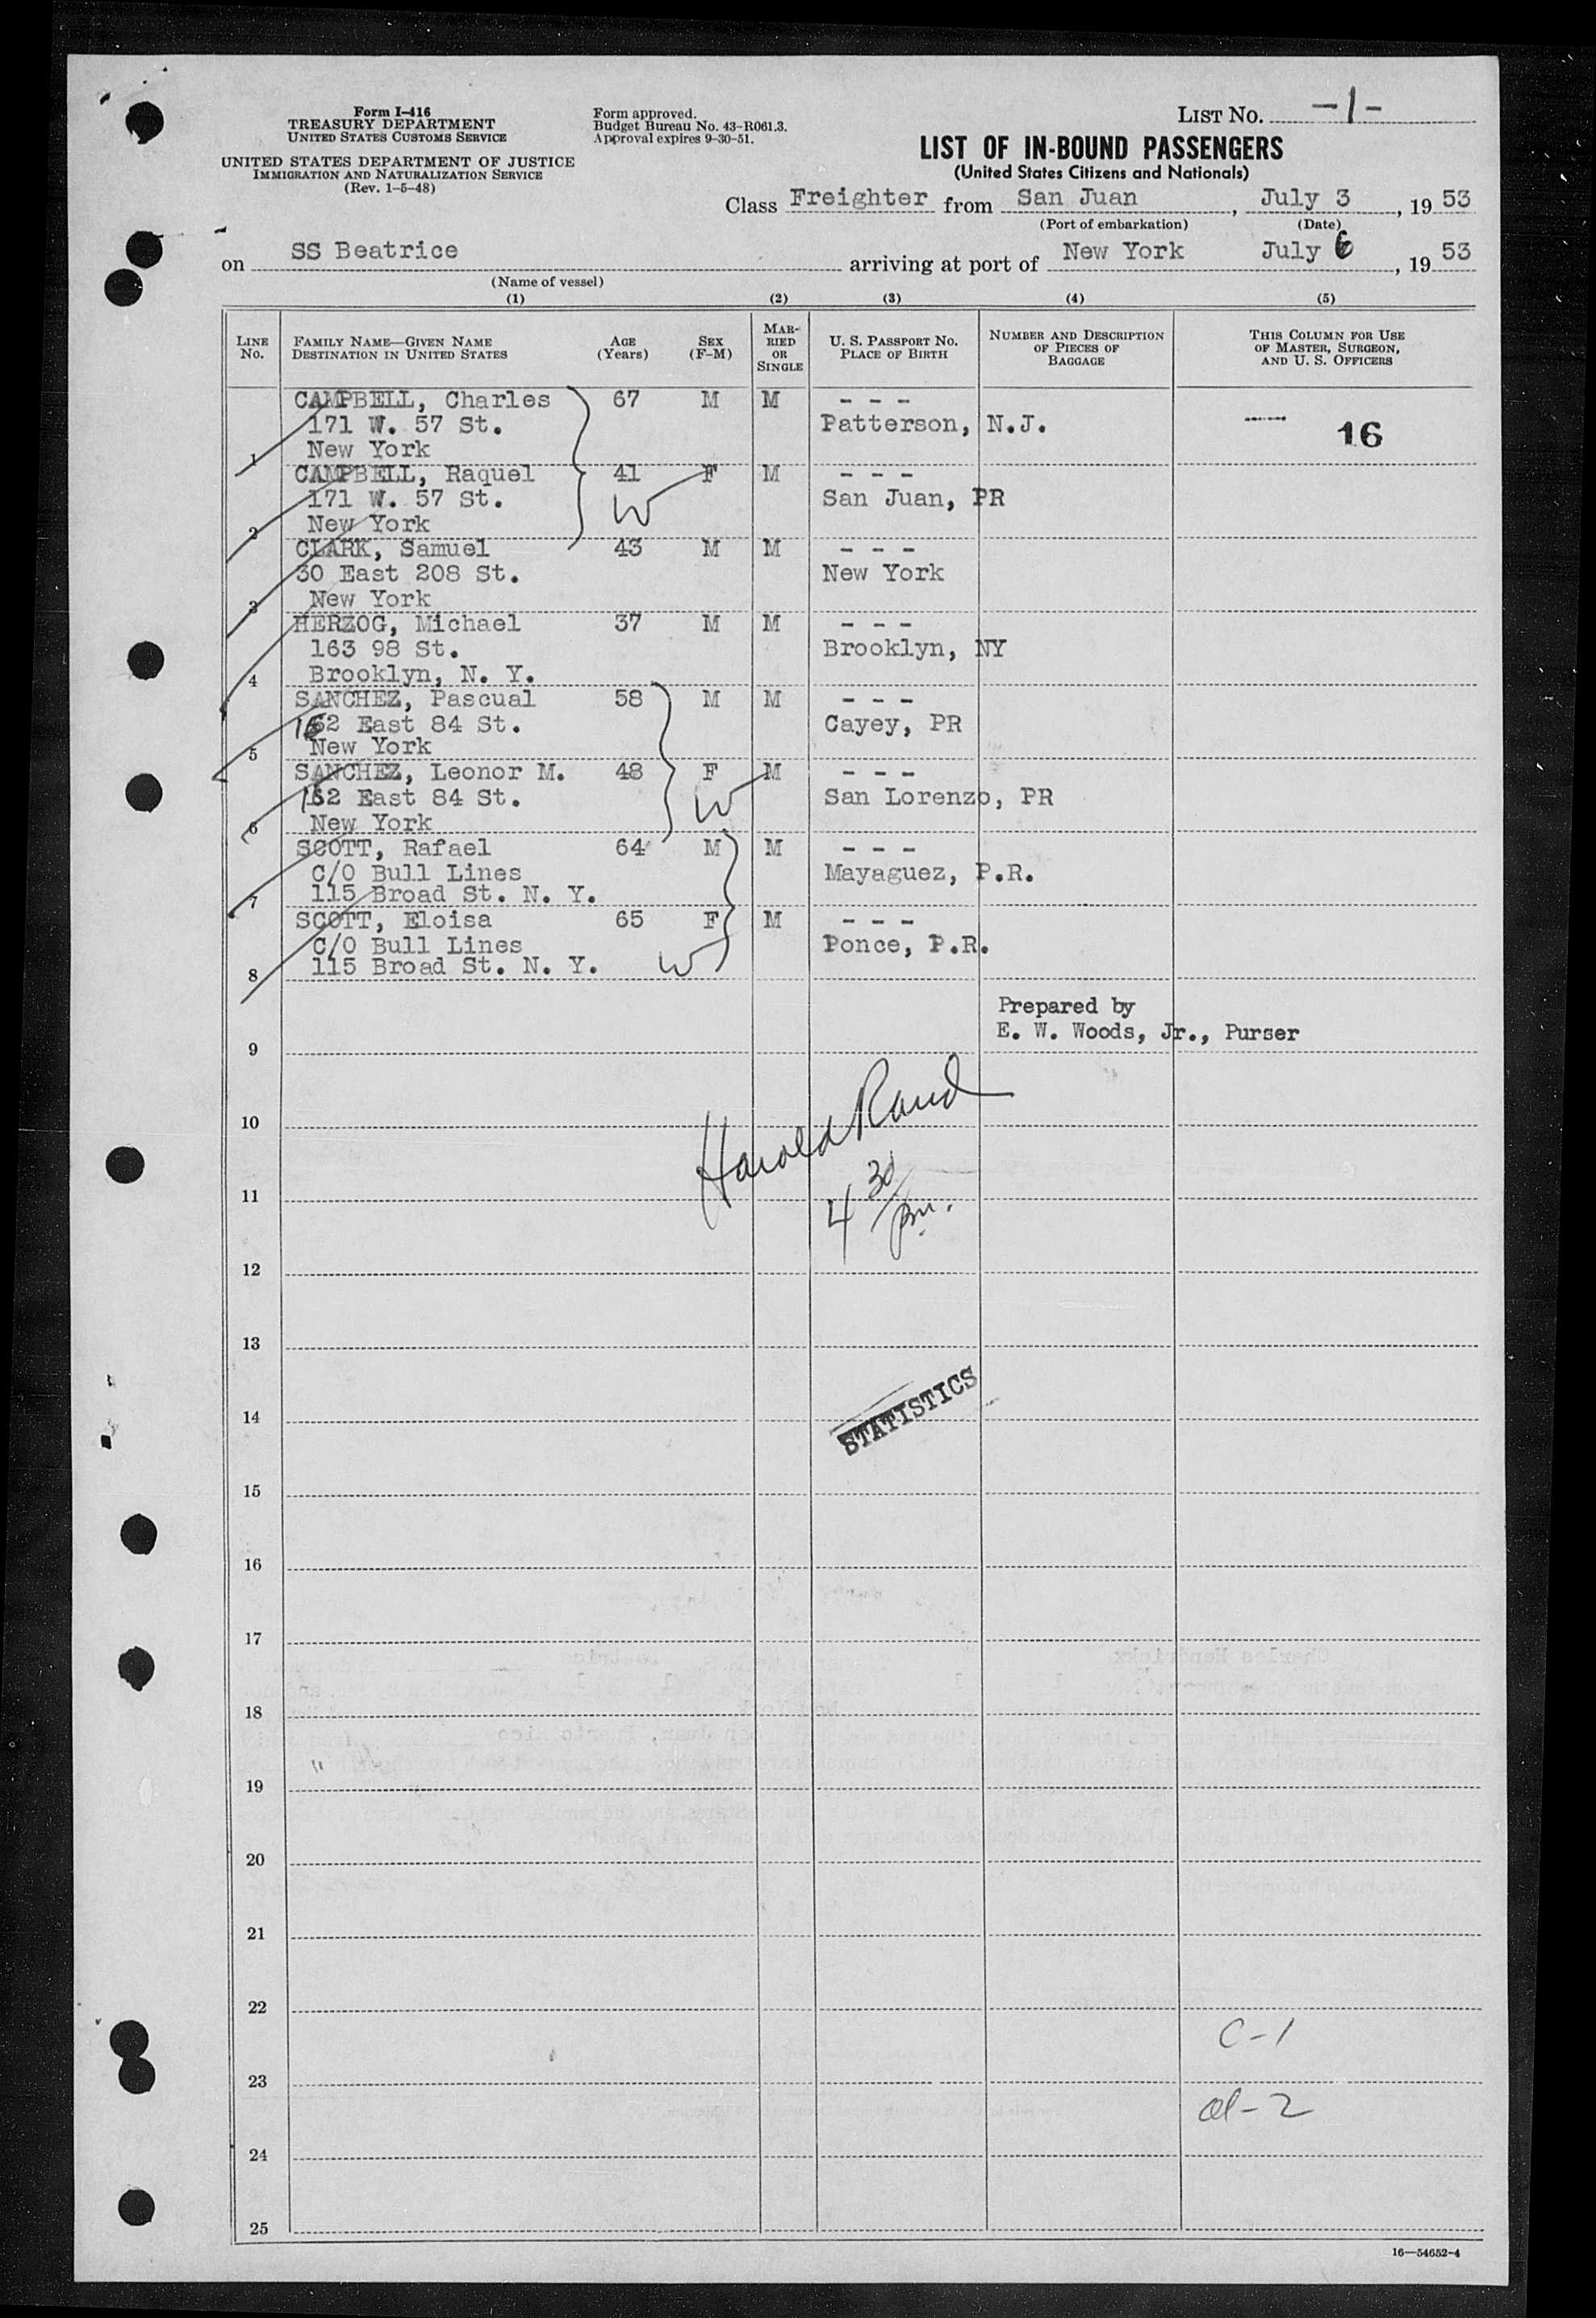 Form I-416
TREASURY DEPARTMENT
UNITED STATES CUSTOMS SERVICE
UNITED STATES DEPARTMENT OF JUSTICE
IMMIGRATION AND NATURALIZATION SERVICE
(Rev. 1-5-48)
Form approved.
Budget Bureau No. 43-R061.3.
Approval expires 9-30-51.
LIST No. -1-
LIST OF IN-BOUND PASSENGERS
(United States Citizens and Nationals)
Class Freighter from San Juan, July 3, 1953
(Port of embarkation) (Date)
on SS Beatrice arriving at port of New York July 6, 1953
(Name of vessel)
(1) (2) (3) (4) (5)
LINE No. FAMILY NAME—GIVEN NAME DESTINATION IN UNITED STATES AGE (Years) SEX (F-M) MARRIED OR SINGLE U. S. PASSPORT No. PLACE OF BIRTH NUMBER AND DESCRIPTION OF PIECES OF BAGGAGE THIS COLUMN FOR USE OF MASTER, SURGEON, AND U. S. OFFICERS
CAMPBELL, Charles 67 M M - - -
171 W. 57 St. Patterson, N.J. 16
1 New York
CAMPBELL, Raquel 41 F M - - -
171 W. 57 St. W San Juan, PR
2 New York
CLARK, Samuel 43 M M - - -
30 East 208 St. New York
3 New York
HERZOG, Michael 37 M M - - -
163 98 St. Brooklyn, NY
4 Brooklyn, N. Y.
SANCHEZ, Pascual 58 M M - - -
162 East 84 St. Cayey, PR
5 New York
SANCHEZ, Leonor M. 48 F M - - -
162 East 84 St. W San Lorenzo, PR
6 New York
SCOTT, Rafael 64 M M - - -
C/O Bull Lines Mayaguez, P.R.
7 115 Broad St. N. Y.
SCOTT, Eloisa 65 F M - - -
C/O Bull Lines Ponce, P.R.
8 115 Broad St. N. Y. W
Prepared by
E. W. Woods, Jr., Purser
9
Harold Rand
10
4 30 pm.
11
12
13
STATISTICS
14
15
16
17
18
19
20
21
22
C-1
23
24
25
16—54652-4